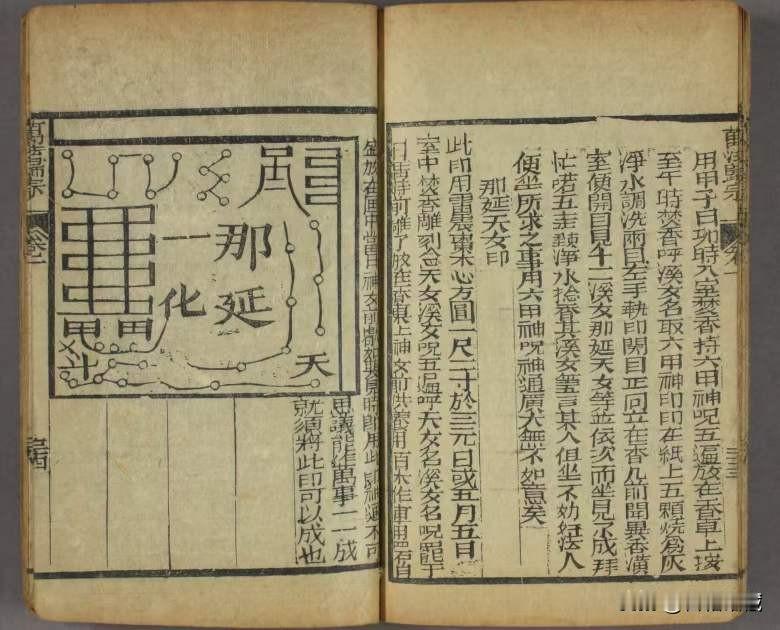 萬法歸宗
用甲子日 時入室焚香持六甲神呪五遍放在香卓上接
至午時焚香呼溪女名取六甲神印印在紙上五顆燒為灰
淨水調洗兩目左手執印開目正向立在香几前聞異香滿
室便開目見十二溪女那延天女等並依次而坐見不成拜
忙喏五 淨水捻香其溪女 言某人但坐不効 法人
便坐所求之事用六甲神呪神通廣大無不如意矣
那延天女印
此印用雷震棗木心方圓一尺二寸於三元日或五月五日
室中焚香雕刻念天女溪女呪五遍呼天女名溪女名呪罷于
日吉時可雕了放在香桌上神女前供養用百木作
盛放在匣中堂中神女前
思議能作萬事一一成
就須將此印可以成也
那延
天
一化
甲甲
斗
萬法歸宗